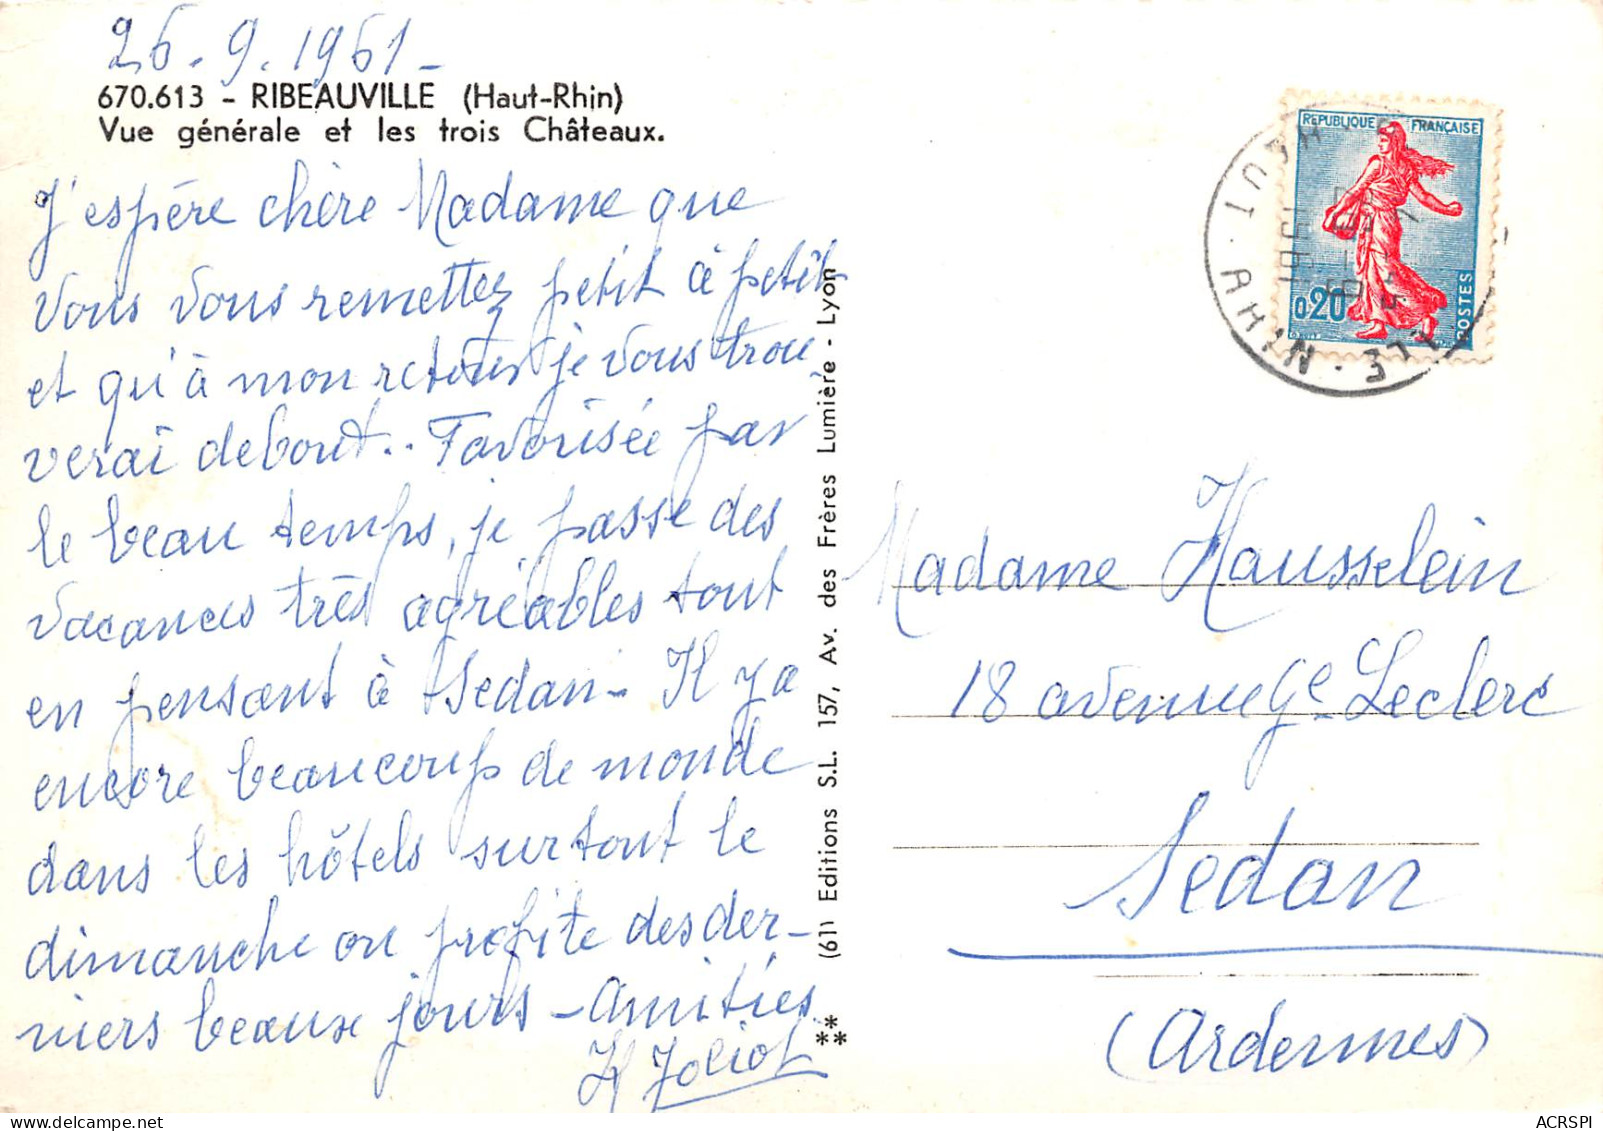 26.9.1961-
670.613 - RIBEAUVILLE (Haut-Rhin)
Vue générale et les trois Châteaux.
J'espère chère Madame que
vous vous remettez petit à petit
et qu'à mon retour je vous trou
verai debout.. Favorisée par
le beau temps, je passe des
vacances très agréables tout
en pensant à Sedan- Il y a
encore beaucoup de monde
dans les hôtels surtout le
dimanche on profite des der-
niers beaux jours - Amitiés.
Joliot
** (61) Editions S.L. 157, Av. des Frères Lumière - Lyon
REPUBLIQUE FRANÇAISE
0,20
POSTES
HAUT-RHIN
Madame Hausselein
18 avenue Ge Leclerc
Sedan
(Ardennes)
ACRSPI